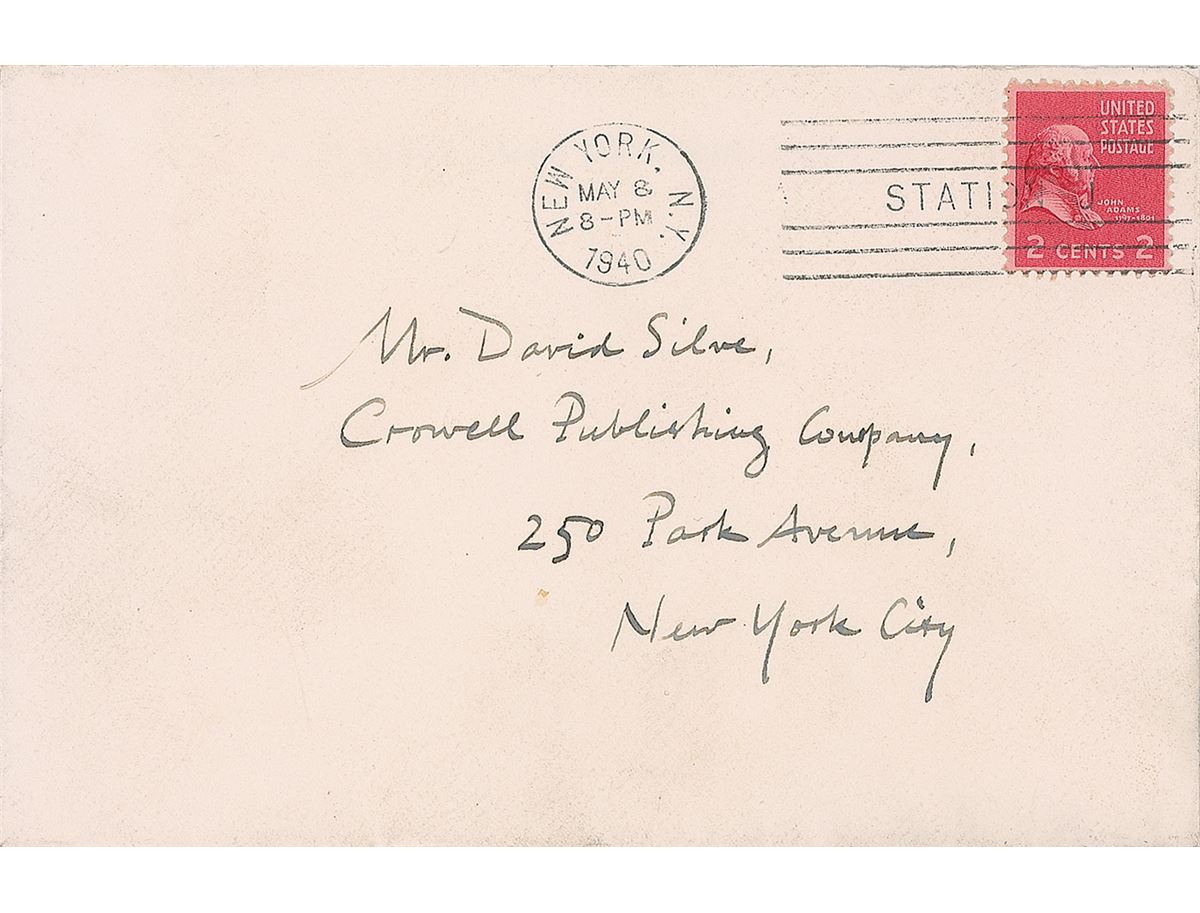 NEW YORK, N.Y.
MAY 8
8-PM
1940
STATION J
UNITED
STATES
POSTAGE
JOHN
ADAMS
1797-1801
2 CENTS 2
Mr. David Silve,
Crowell Publishing Company,
250 Park Avenue,
New York City